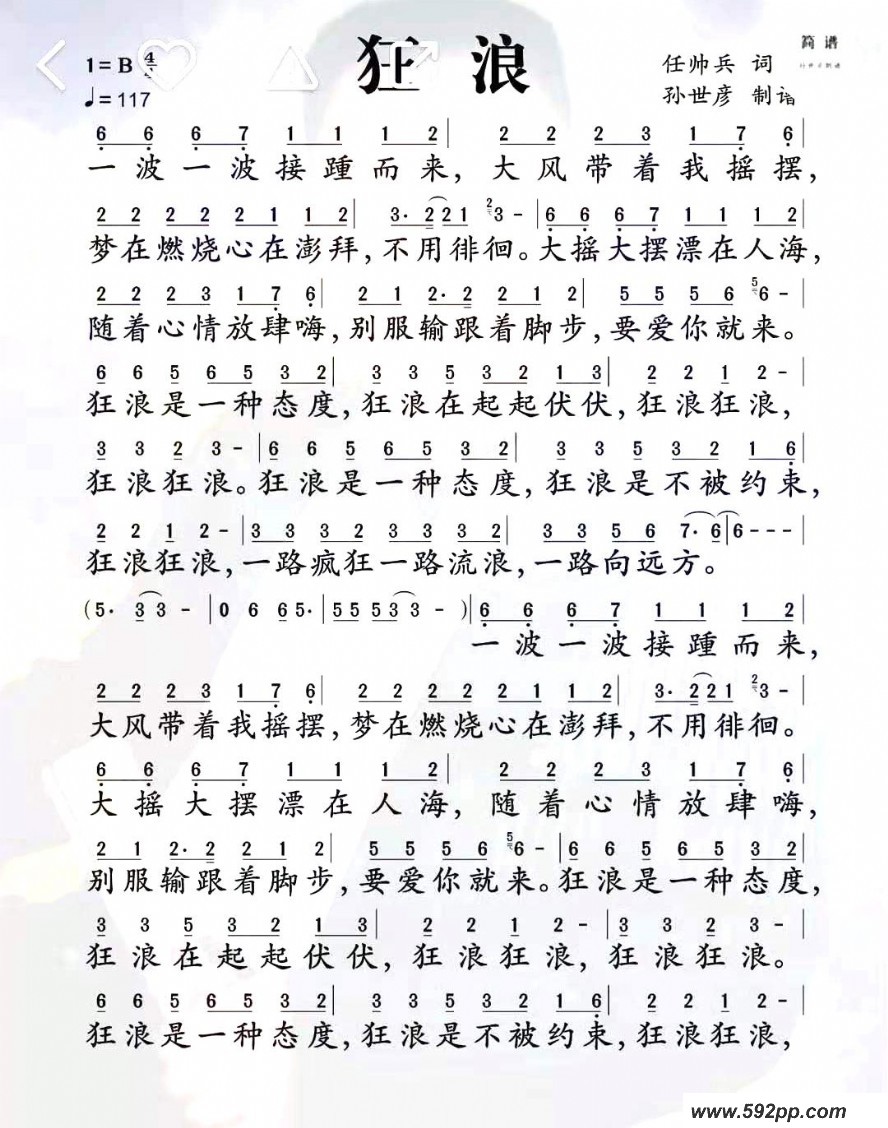 狂浪
简谱
1=B 4
♩=117
任帅兵 词
孙世彦 制谱
6 6 6 7 1 1 1 2 | 2 2 2 3 1 7 6 |
一波一波接踵而来,大风带着我摇摆,
2 2 2 2 2 1 1 2 | 3· 2 2 1 2 3 - | 6 6 6 7 1 1 1 2 |
梦在燃烧心在澎拜,不用徘徊。大摇大摆漂在人海,
2 2 2 3 1 7 6 | 2 1 2· 2 2 1 2 | 5 5 5 6 5 6 - |
随着心情放肆嗨,别服输跟着脚步,要爱你就来。
6 6 5 6 5 3 2 | 3 3 5 3 2 1 3 | 2 2 1 2 - |
狂浪是一种态度,狂浪在起起伏伏,狂浪狂浪,
3 3 2 3 - | 6 6 5 6 5 3 2 | 3 3 5 3 2 1 6 |
狂浪狂浪。狂浪是一种态度,狂浪是不被约束,
2 2 1 2 - | 3 3 3 2 3 3 3 2 | 3 3 5 6 7· 6 | 6 - - - |
狂浪狂浪,一路疯狂一路流浪,一路向远方。
(5· 3 3 - | 0 6 6 5· | 5 5 5 3 3 - ) | 6 6 6 7 1 1 1 2 |
一波一波接踵而来,
2 2 2 3 1 7 6 | 2 2 2 2 2 1 1 2 | 3· 2 2 1 2 3 - |
大风带着我摇摆,梦在燃烧心在澎拜,不用徘徊。
6 6 6 7 1 1 1 2 | 2 2 2 3 1 7 6 |
大摇大摆漂在人海,随着心情放肆嗨,
2 1 2· 2 2 1 2 | 5 5 5 6 5 6 - | 6 6 5 6 5 3 2 |
别服输跟着脚步,要爱你就来。狂浪是一种态度,
3 3 5 3 2 1 3 | 2 2 1 2 - | 3 3 2 3 - |
狂浪在起起伏伏,狂浪狂浪,狂浪狂浪。
6 6 5 6 5 3 2 | 3 3 5 3 2 1 6 | 2 2 1 2 - |
狂浪是一种态度,狂浪是不被约束,狂浪狂浪,
www.592pp.com